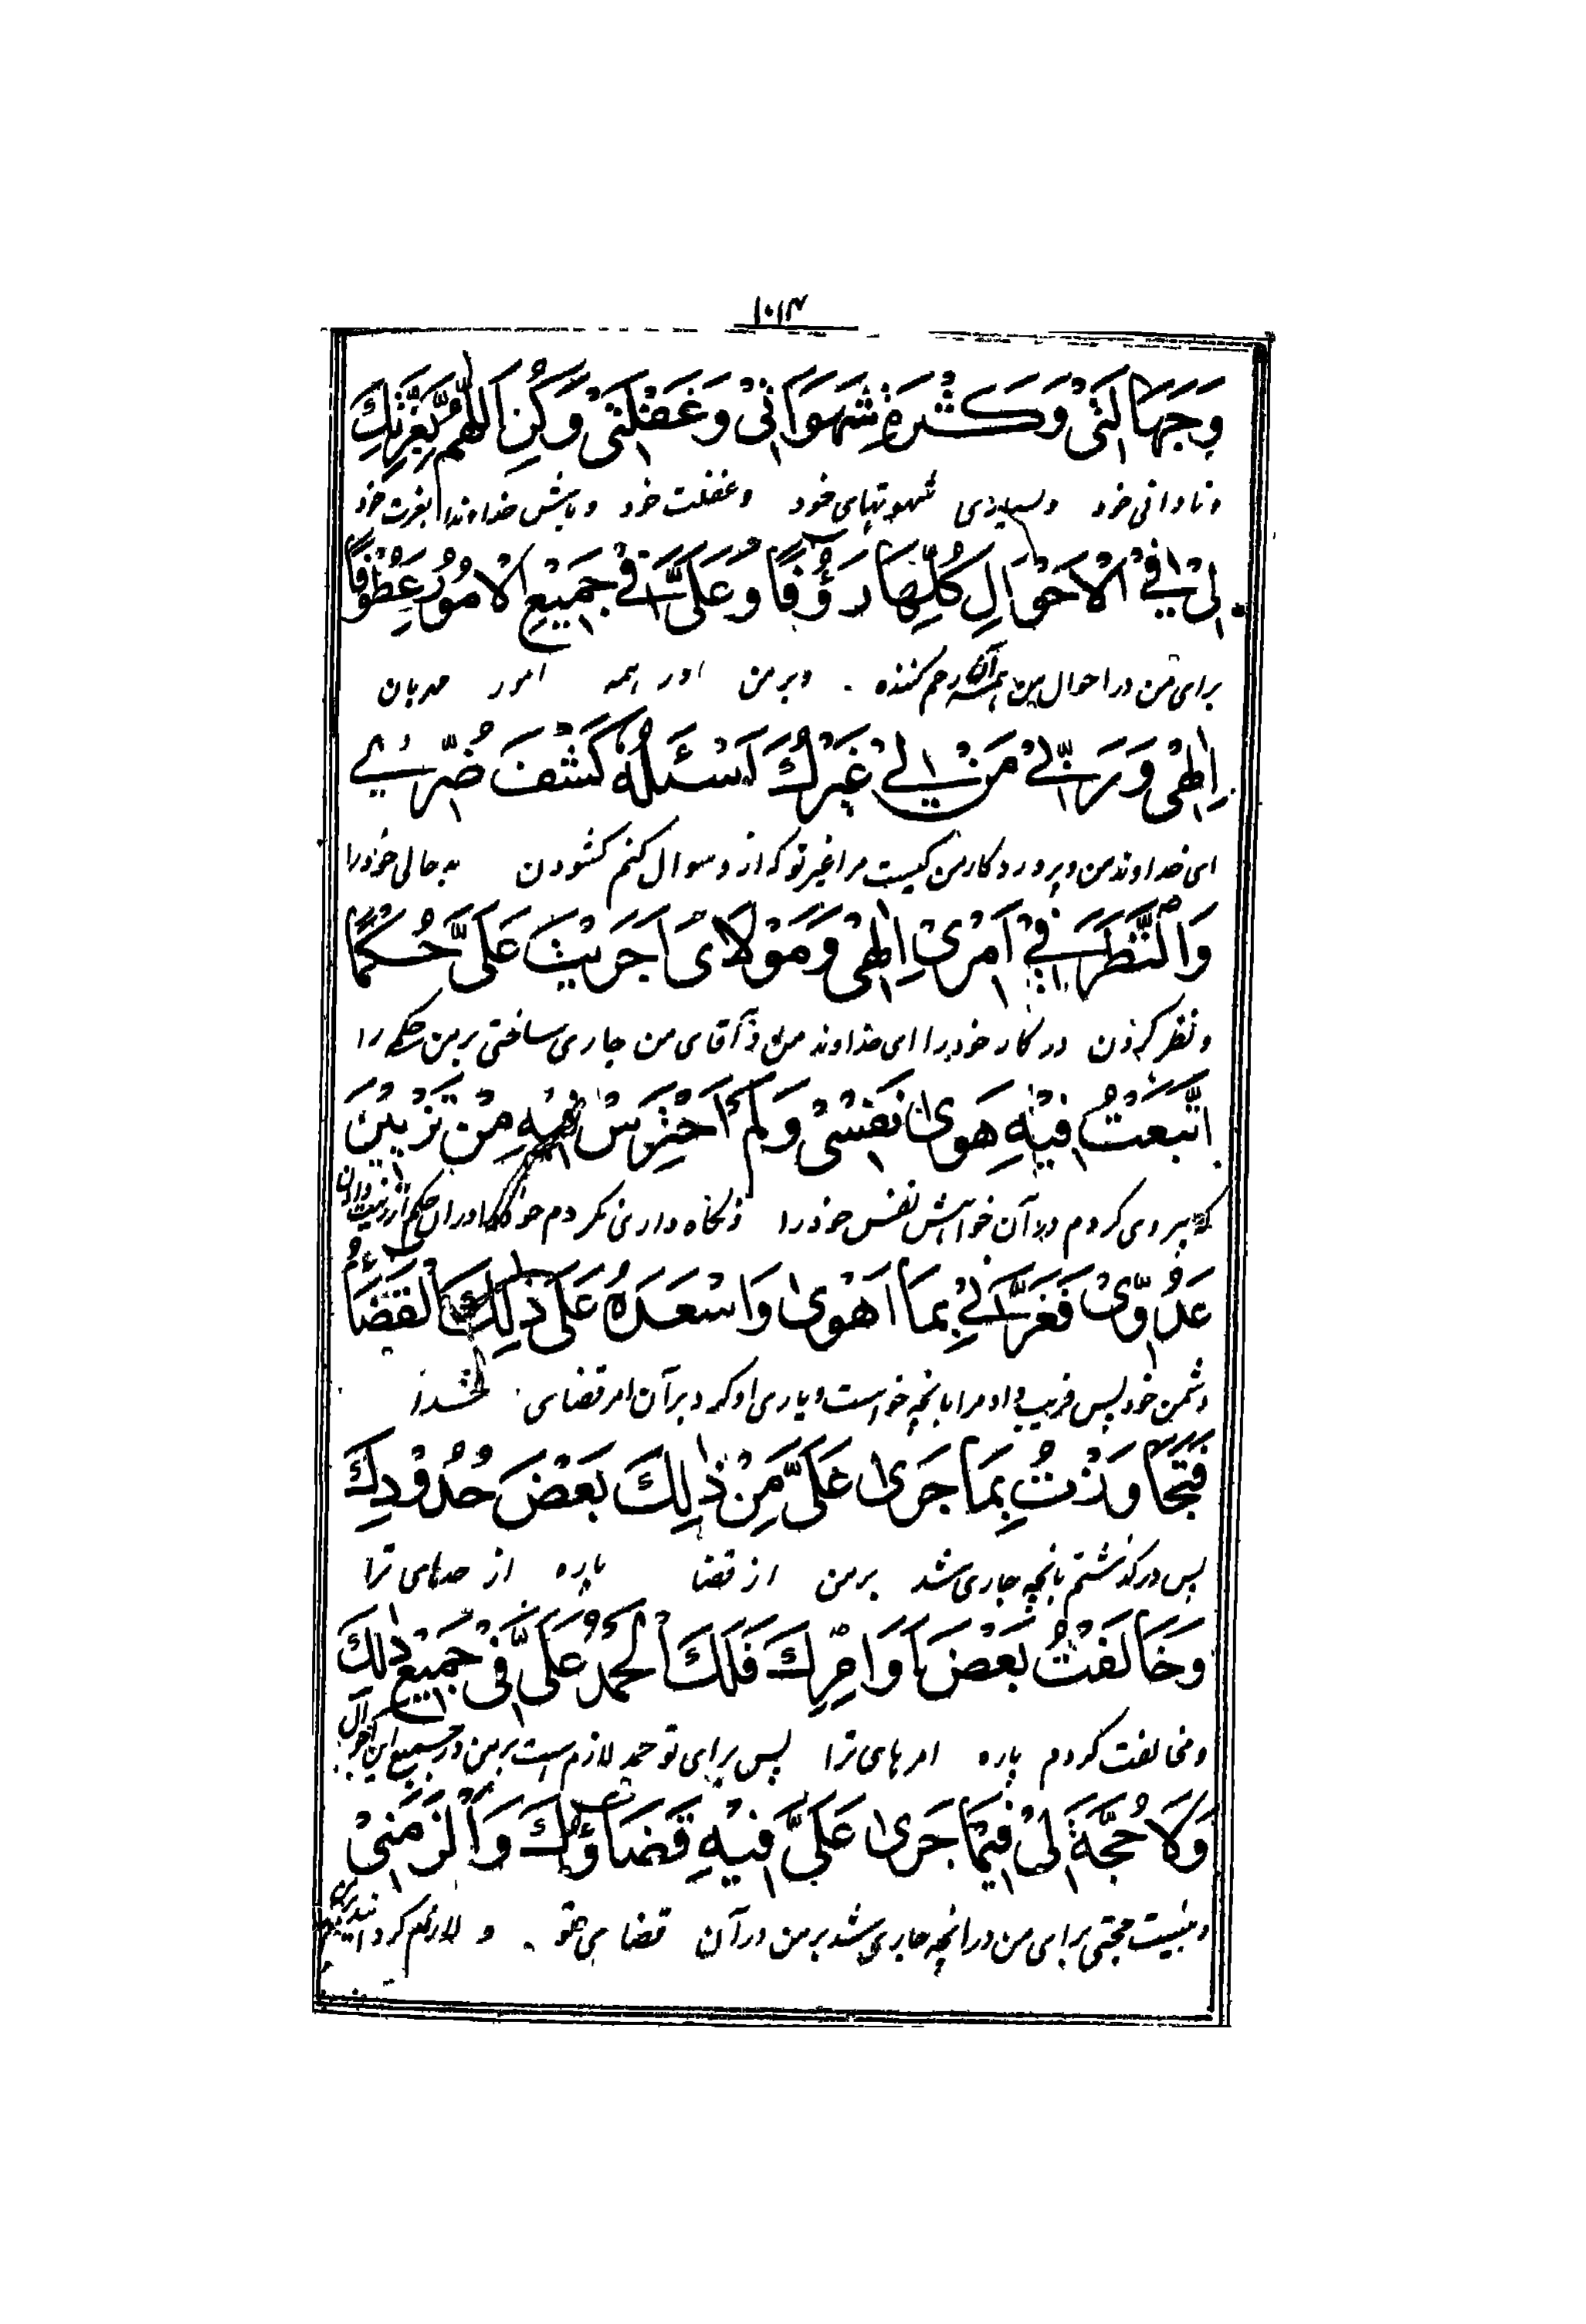 ۱۰۱۴
وَجَهَالَتىْ وَكَثْرَةِ شَهَوَاتىْ وَغَفْلَتىْ وَكُنِ اَللّٰهُمَّ بِعِزَّتِكَ
و نادانی خود و بسیاری شهوتهای خود و غفلت خود و باش خداوندا بعزت خود
لىْ فىْ الْاَحْوَالِ كُلِّهَا رَؤُفًا وَعَلَىَّ فىْ جَمِيْعِ الْاُمُوْرِ عَطُوْفًا
برای من در احوال من همه آن رحم کننده و بر من در همه امور مهربان
اِلٰهىْ وَرَبّىْ مَنْ لىْ غَيْرُكَ اَسْئَلُهُ كَشْفَ ضُرّىْ
ای خداوند من و پروردکار من کیست مرا غیر تو که از و سوال کنم کشودن بدحالی خود را
وَالنَّظَرَ فىْ اَمْرىْ اِلٰهىْ وَمَوْلَاىَ اَجْرَيْتَ عَلَىَّ حُكْمًا
و نظر کردن در کار خود را ای خداوند من و آقای من جاری ساختی بر من حکمی را
اتَّبَعْتُ فيْهِ هَوىٰ نَفْسىْ وَلَمْ اَحْتَرِسْ فيْهِ مِنْ تَزْيينِ
که پیروی کردم در آن خواهش نفس خود را و نکاه داری نکردم خود را در ان حکم از زینت دادن
عَدُوّىْ فَغَرَّنىْ بِمَا اَهْوىٰ وَاسْعَدَهُ عَلىٰ ذٰلِكَ الْقَضَاءُ
دشمن خود پس فریب داد مرا بانچه خواست و یاری او کرد بر آن امر قضای خدا
فَتَجَاوَزْتُ بِمَا جَرىٰ عَلَىَّ مِنْ ذٰلِكَ بَعْضَ حُدُوْدِكَ
پس در کذشتم بانچه جاری شد بر من از قضا پاره از حدهای ترا
وَخَالَفْتُ بَعْضَ اَوَامِرِكَ فَلَكَ الْحَمْدُ عَلَىَّ فىْ جَمِيْعِ ذٰلِكَ
و مخالفت کردم پاره امرهای ترا پس برای تو حمد لازم است بر من در جمیع این
وَلَا حُجَّةَ لىْ فيْمَا جَرىٰ عَلَىَّ فيْهِ قَضَاؤُكَ وَاَلْزَمَنىْ
و نیست حجتی برای من در انچه جاری شد بر من در آن قضای تو و لازم کرد